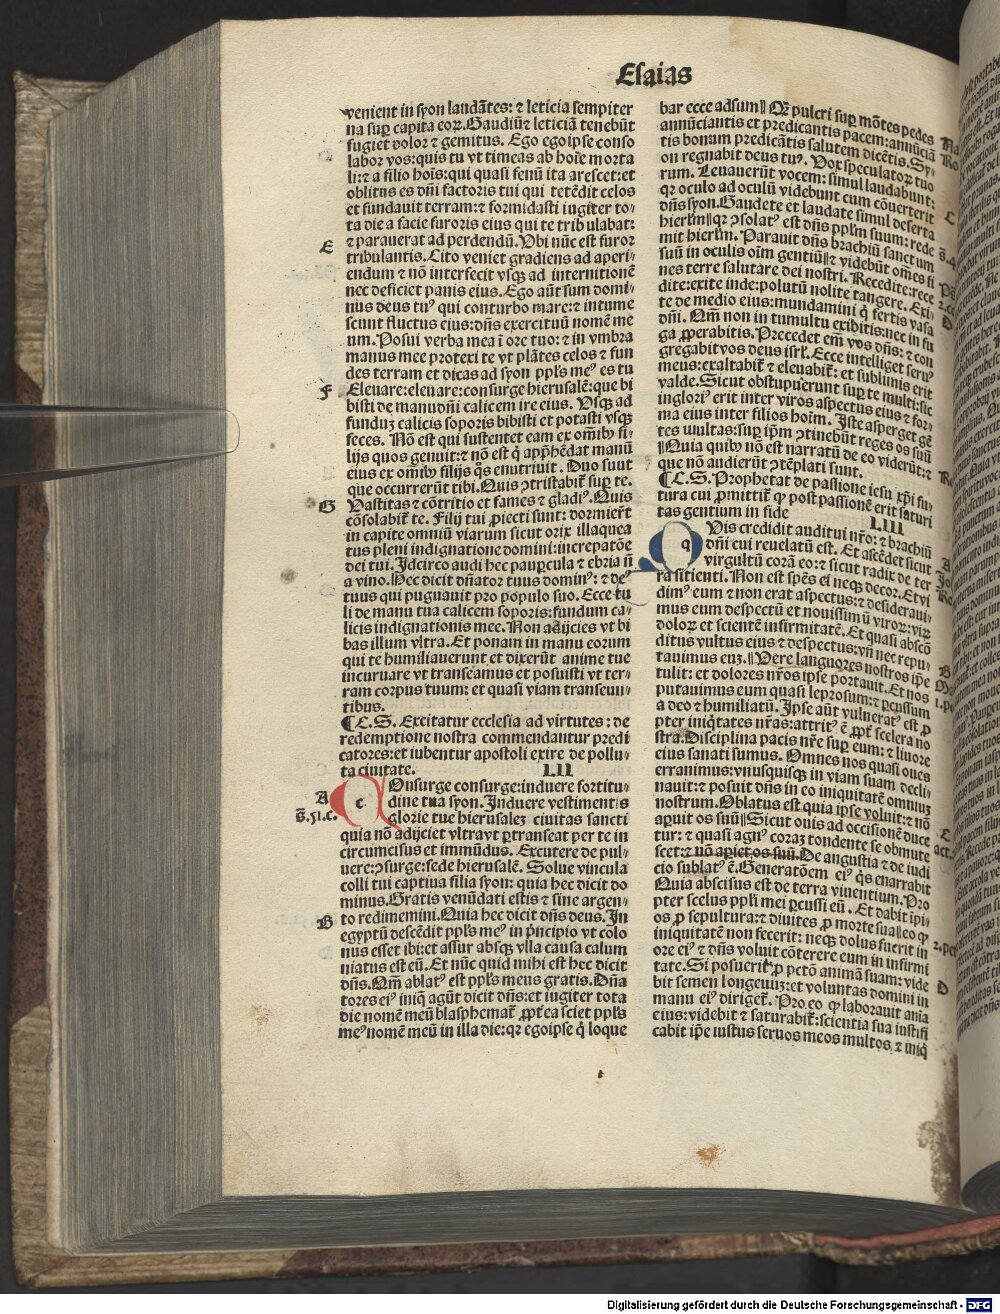 Esaias
venient in syon laudātes: ⁊ leticia sempiter
na suꝑ capita eoꝝ. Gaudiū ⁊ leticiā tenebūt
fugiet dolor ⁊ gemitus. Ego ego ipse conso
labor vos: quis tu vt timeas ab hoīe morta
li: ⁊ a filio hoīs: qui quasi fenū ita arescet: et
oblitus es dñi factoris tui qui tetēdit celos
et fundauit terram: ⁊ formidasti iugiter to⸗
ta die a facie furoris eius qui te tribulabat:
E
⁊ parauerat ad perdendū. Vbi nūc est furor
tribulantis. Cito veniet gradiens ad aperi⸗
endum ⁊ nō interficit vsqꝫ ad internitionē
nec deficiet panis eius. Ego aūt sum domi⸗
nus deus tuꝰ qui conturbo mare: ⁊ intume
scunt fluctus eius: dñs exercituū nomē me
um. Posui verba mea ī ore tuo: ⁊ in vmbra
manus mee protexi te vt plātes celos ⁊ fun
des terram et dicas ad syon ppl's meꝰ es tu
F
Eleuare: eleuare: consurge hierusalē: que bi
bisti de manu dñi calicem ire eius. Vsqꝫ ad
fundū calicis soporis bibisti et potasti vsqꝫ
feces. Nō est qui sustentet eam ex oīnibꝰ fi⸗
lijs quos genuit: ⁊ nō est q̄ appħēdat manū
eius ex oīnibꝰ filijs q̄s enutriuit. Duo sunt
que occurrerūt tibi. Quis ꝯtristabit̄ suꝑ te.
G
Vastitas ⁊ cōtritio et fames ⁊ gladiꝰ. Quis
cōsolabit̄ te. Filij tui ꝓiecti sunt: dormier̄t
in capite omniū viarum sicut orix illaquea
tus pleni indignatione domini: increpatōe
dei tui. Idcirco audi hec paupercula ⁊ ebria n̄
a vino. Hec dicit dn̄ator tuus dominꝰ: ⁊ deꝰ
tuus qui pugnauit pro populo suo. Ecce tu
li de manu tua calicem soporis: fundum ca⸗
licis indignationis mee. Non adijcies vt bi
bas illum vltra. Et ponam in manu eorum
qui te humiliauerunt et dixerūt anime tue
incuruare vt transeamus et posuisti vt ter⸗
ram corpus tuum: et quasi viam transeun⸗
tibus.
¶ C.S. Excitatur ecclesia ad virtutes: de
redemptione nostra commendantur predi
catores: et iubentur apostoli exire de pollu⸗
ta ciuitate. LII
A
COnsurge consurge: induere fortitu⸗
dine tua syon. Induere vestimentis
glorie tue hierusalē ciuitas sancti
quia nō adijciet vltra vt ꝑtranseat per te in
circumcisus et immūdus. Excutere de pul⸗
uere: ꝯsurge: sede hierusalē. Solue vincula
colli tui captiua filia syon: quia hec dicit do
minus. Gratis venūdati estis ⁊ sine argen⸗
B
to redimemini. Quia hec dicit dñs deus. In
egyptū descēdit ppl's meꝰ in p̄ncipio vt colo
nus esset ibi: et assur absqꝫ vlla causa calum
niatus est eū. Et nūc quid mihi est hec dicit
dñs. Qm̄ ablatꝰ est ppl's meus gratis. Dn̄a
tores eiꝰ iniq̄ agūt dicit dñs: et iugiter tota
die nomē meū blasphemat̄. ꝓpt̄ea sciet ppl's
meꝰ nomē meū in illa die: qꝛ ego ipse q̄ loque
bar ecce adsum ‖ Qꝫ pulcri suꝑ mōtes pedes
annūciantis et predicantis pacem: annūciā
tis bonam predicātis salutem dicētis. Sy⸗
on regnabit deus tuꝰ. Vox speculatoꝝ tuo
rum. Leuauerūt vocem: simul laudabunt:
qꝛ oculo ad oculū videbunt cum cōuerterit
dñs syon. Gaudete et laudate simul deserta
hierlm̄ ‖ qꝛ ꝯsolatꝰ est dñs pplm̄ suum: rede
mit hierlm̄. Parauit dñs brachiū sanctum
suū in oculis oīm gentiū ⁊ videbūt om̄es fi
nes terre salutare dei nostri. Recedite: rece
dite: exite inde: polutū nolite tangere. Exi⸗
te de medio eius: mundamini q̄ fertis vasa
dñi. Qm̄ non in tumultu exibitis: nec in fu
ga ꝓperabitis. Precedet em̄ vos dñs: ⁊ con
gregabit vos deus isrl'. Ecce intelliget seruꝰ
meus: exaltabit̄ ⁊ eleuabit̄: et sublimis erit
valde. Sicut obstupuerunt suꝑ te multi: sic
inglorꝰ erit inter viros aspectus eius ⁊ for⸗
ma eius inter filios hoīm. Iste asperget gē
tes multas: suꝑ ip̄m ꝯtinebūt reges os suū
‖ Quia quibꝰ nō est narratū de eo viderūt: ⁊
que nō audierūt ꝯtēplati sunt.
¶ C.S. Prophetat de passione iesu xp̄i fu⸗
tura cui ꝓmittit̄ qꝫ post passionē erit saturi
tas gentium in fide LIII
QVis credidit auditui nr̄o: ⁊ brachiū
dñi cui reuelatū est. Et ascēdet sicut
virgultū corā eo: ⁊ sicut radix de ter
ra sitienti. Non est spēs ei neqꝫ decor. Et vi
dimꝰ eum ⁊ non erat aspectus: ⁊ desideraui⸗
mus eum despectū et nouissimū viroꝝ: virꝫ
doloꝝ et scientē infirmitatē. Et quasi abscō
ditus vultus eius ⁊ despectus: vn̄ nec repu⸗
tauimus eū. ‖ Vere languores nostros ip̄e
tulit: et dolores nr̄os ipse portauit. Et nos
putauimus eum quasi leprosum: ⁊ ꝑcussum
a deo ⁊ humiliatū. Ipse aūt vulneratꝰ est ꝓ
pter iniq̄tates nr̄as: attritꝰ ē ꝓpt̄ scelera no
stra. Disciplina pacis nr̄e suꝑ eum: ⁊ liuore
eius sanati sumus. Omnes nos quasi oues
errauimus: vnusquisqꝫ in viam suam decli⸗
nauit: ⁊ posuit dñs in eo iniquitatē omniuꝫ
nostrum. Oblatus est quia ipse voluit: ⁊ nō
aꝑuit os suū ‖ Sicut ouis ad occisionē duce
tur: ⁊ quasi agnꝰ coraꝫ tondente se obmute
scet: ⁊ nō aperiet os suū. De angustia ⁊ de iudi
cio sublatꝰ ē. Generatōem eiꝰ q̄s enarrabit
Quia abscisus est de terra viuentium. Pro
pter scelus ppl'i mei ꝑcussi eū. Et dabit ipi⸗
os ꝓ sepultura: ⁊ diuites ꝓ morte sua ‖ eo qꝫ
iniquitatē non fecerit: neqꝫ dolus fuerit in
ore eiꝰ ⁊ dñs voluit cōterere eum in infirmi
tate. Si posuerit ꝓ pctō animā suam: vide
bit semen longeuuꝫ: et voluntas domini in
manu eiꝰ diriget̄. Pro eo qꝫ laborauit anīa
eius: videbit ⁊ saturabit̄: scientia sua iustifi
cabit ip̄e iustus seruos meos multos ⁊ iniq̄
Digitalisierung gefördert durch die Deutsche Forschungsgemeinschaft - DFG